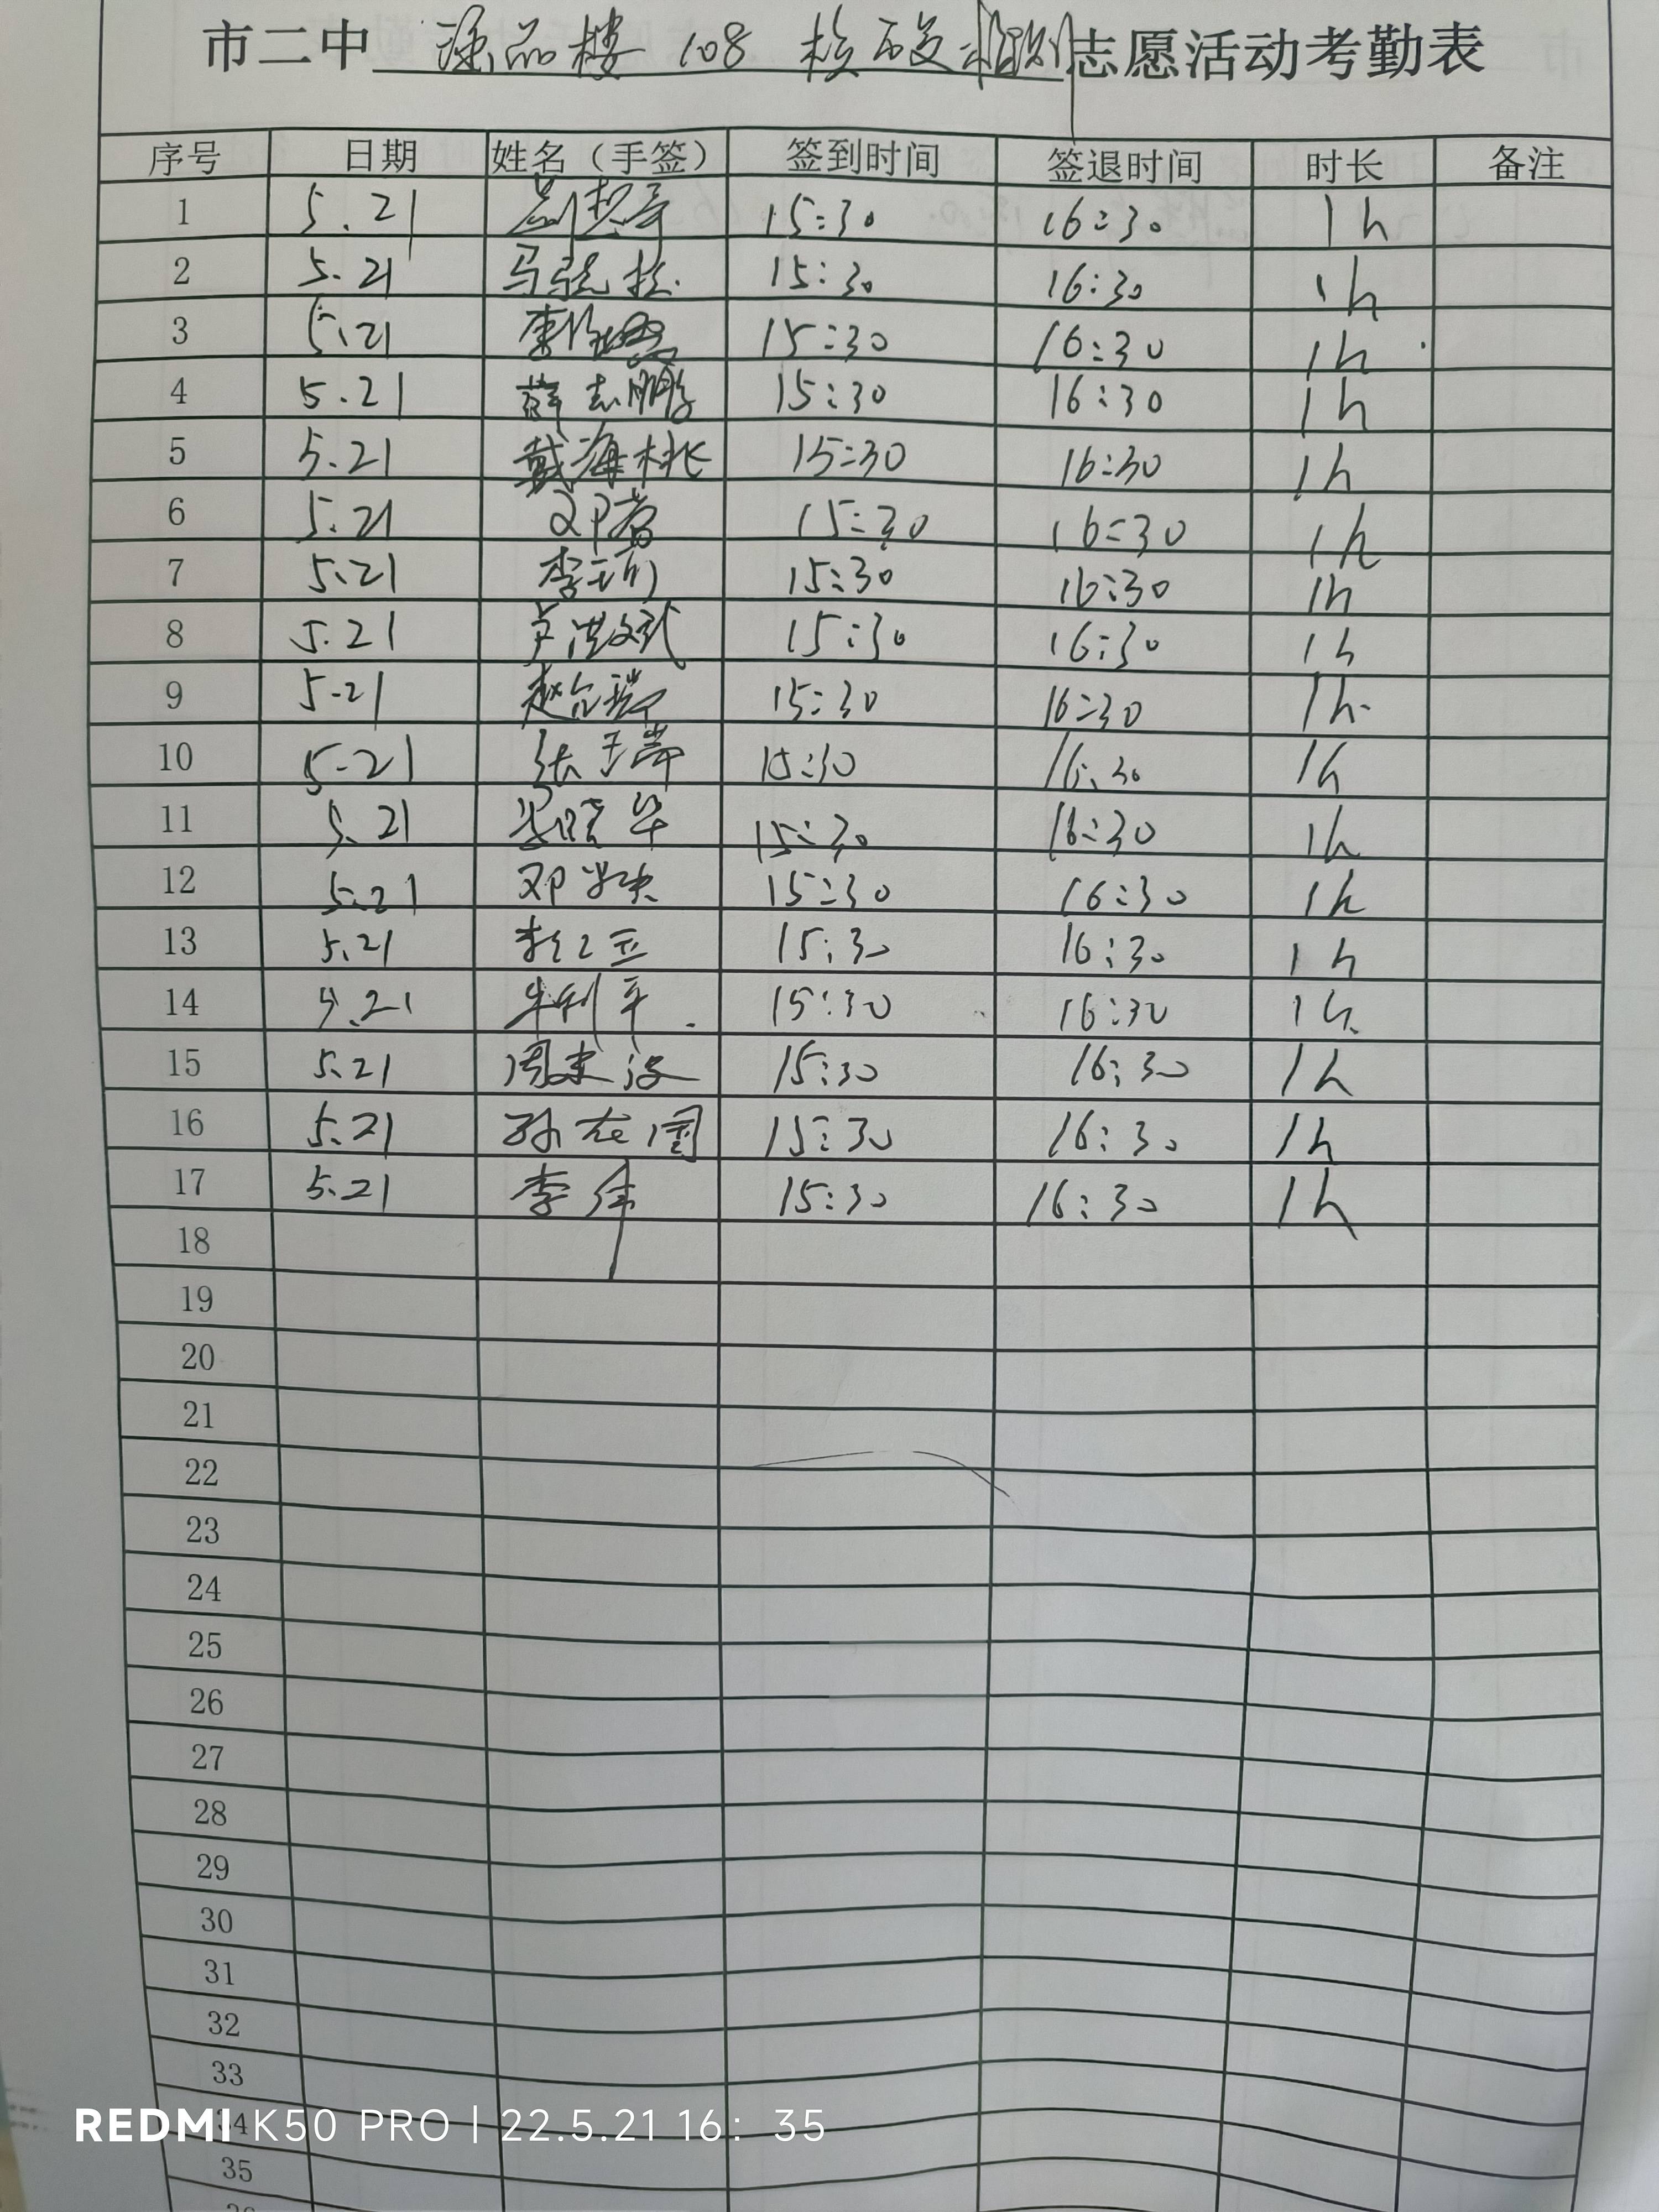 市二中 德品楼 108 核酸检测 志愿活动考勤表
序号 日期 姓名（手签） 签到时间 签退时间 时长 备注
1 5.21 15:30 16:30 1h
2 5.21 马 15:30 16:30 1h
3 5.21 李 15:30 16:30 1h
4 5.21 薛志鹏 15:30 16:30 1h
5 5.21 戴海桃 15:30 16:30 1h
6 5.21 邓 15:30 16:30 1h
7 5.21 李 15:30 16:30 1h
8 5.21 卢洪斌 15:30 16:30 1h
9 5-21 赵 15:30 16:30 1h
10 5-21 张玉 15:30 16:30 1h
11 5.21 晓华 15:30 16:30 1h
12 5.21 邓 15:30 16:30 1h
13 5.21 15:30 16:30 1h
14 5.21 牛利平 15:30 16:30 1h
15 5.21 周 15:30 16:30 1h
16 5.21 孙龙国 15:30 16:30 1h
17 5.21 李伟 15:30 16:30 1h
18
19
20
21
22
23
24
25
26
27
28
29
30
31
32
33
34
REDMI K50 PRO | 22.5.21 16: 35
35